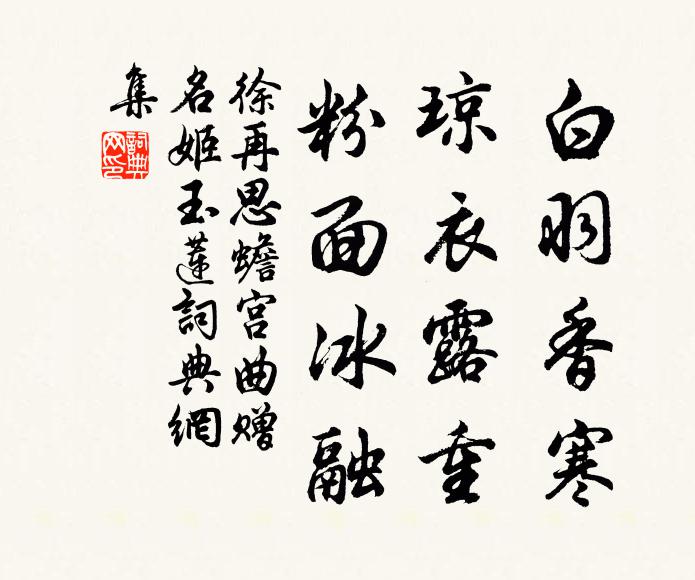 白羽香寒
琼衣露重
粉面冰融
徐再思蟾宫曲赠
名姬玉莲詞典網
集
詞典網印